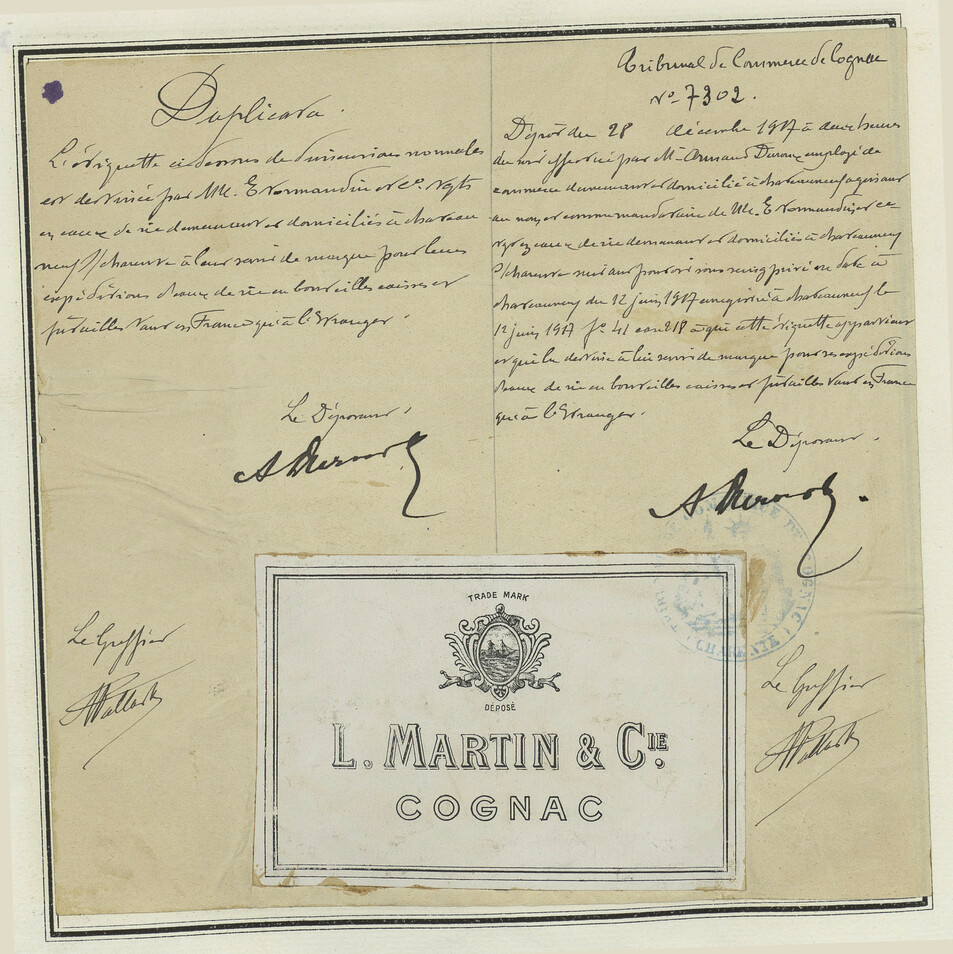 Duplicata.
L'étiquette ci dessous de dimensions normales
est destinée par MM. E Normandin et Cº Ngts
en eaux de vie demeurant et domiciliés à Chateau
neuf s/ charente à leur servir de marque pour leurs
expéditions d'eaux de vie en bouteilles caisses et
futailles tant en France qu'à l'Etranger.
Le Déposant.
Le Greffier
Tribunal de Commerce de Cognac
Nº 7302.
Dépôt du 28 décembre 1917 à deux heures
du soir effectué par Mr Armand employé de
commerce demeurant et domicilié à chateauneuf agissant
au nom et comme mandataire de MM. E Normandin et Cº
Ngts en eaux de vie demeurant et domiciliés à chateauneuf
s/charente suivant pouvoir sous seing privé en date à
chateauneuf du 12 juin 1917 enregistré à chateauneuf le
12 juin 1917 fº 41 case 218 à qui cette étiquette appartient
et qui la destine à lui servir de marque pour ses expéditions
d'eaux de vie en bouteilles caisses et futailles tant en France
qu'à l'Etranger.
Le Déposant.
Le Greffier
TRADE MARK
DÉPOSÉ
L. MARTIN & CIE.
COGNAC